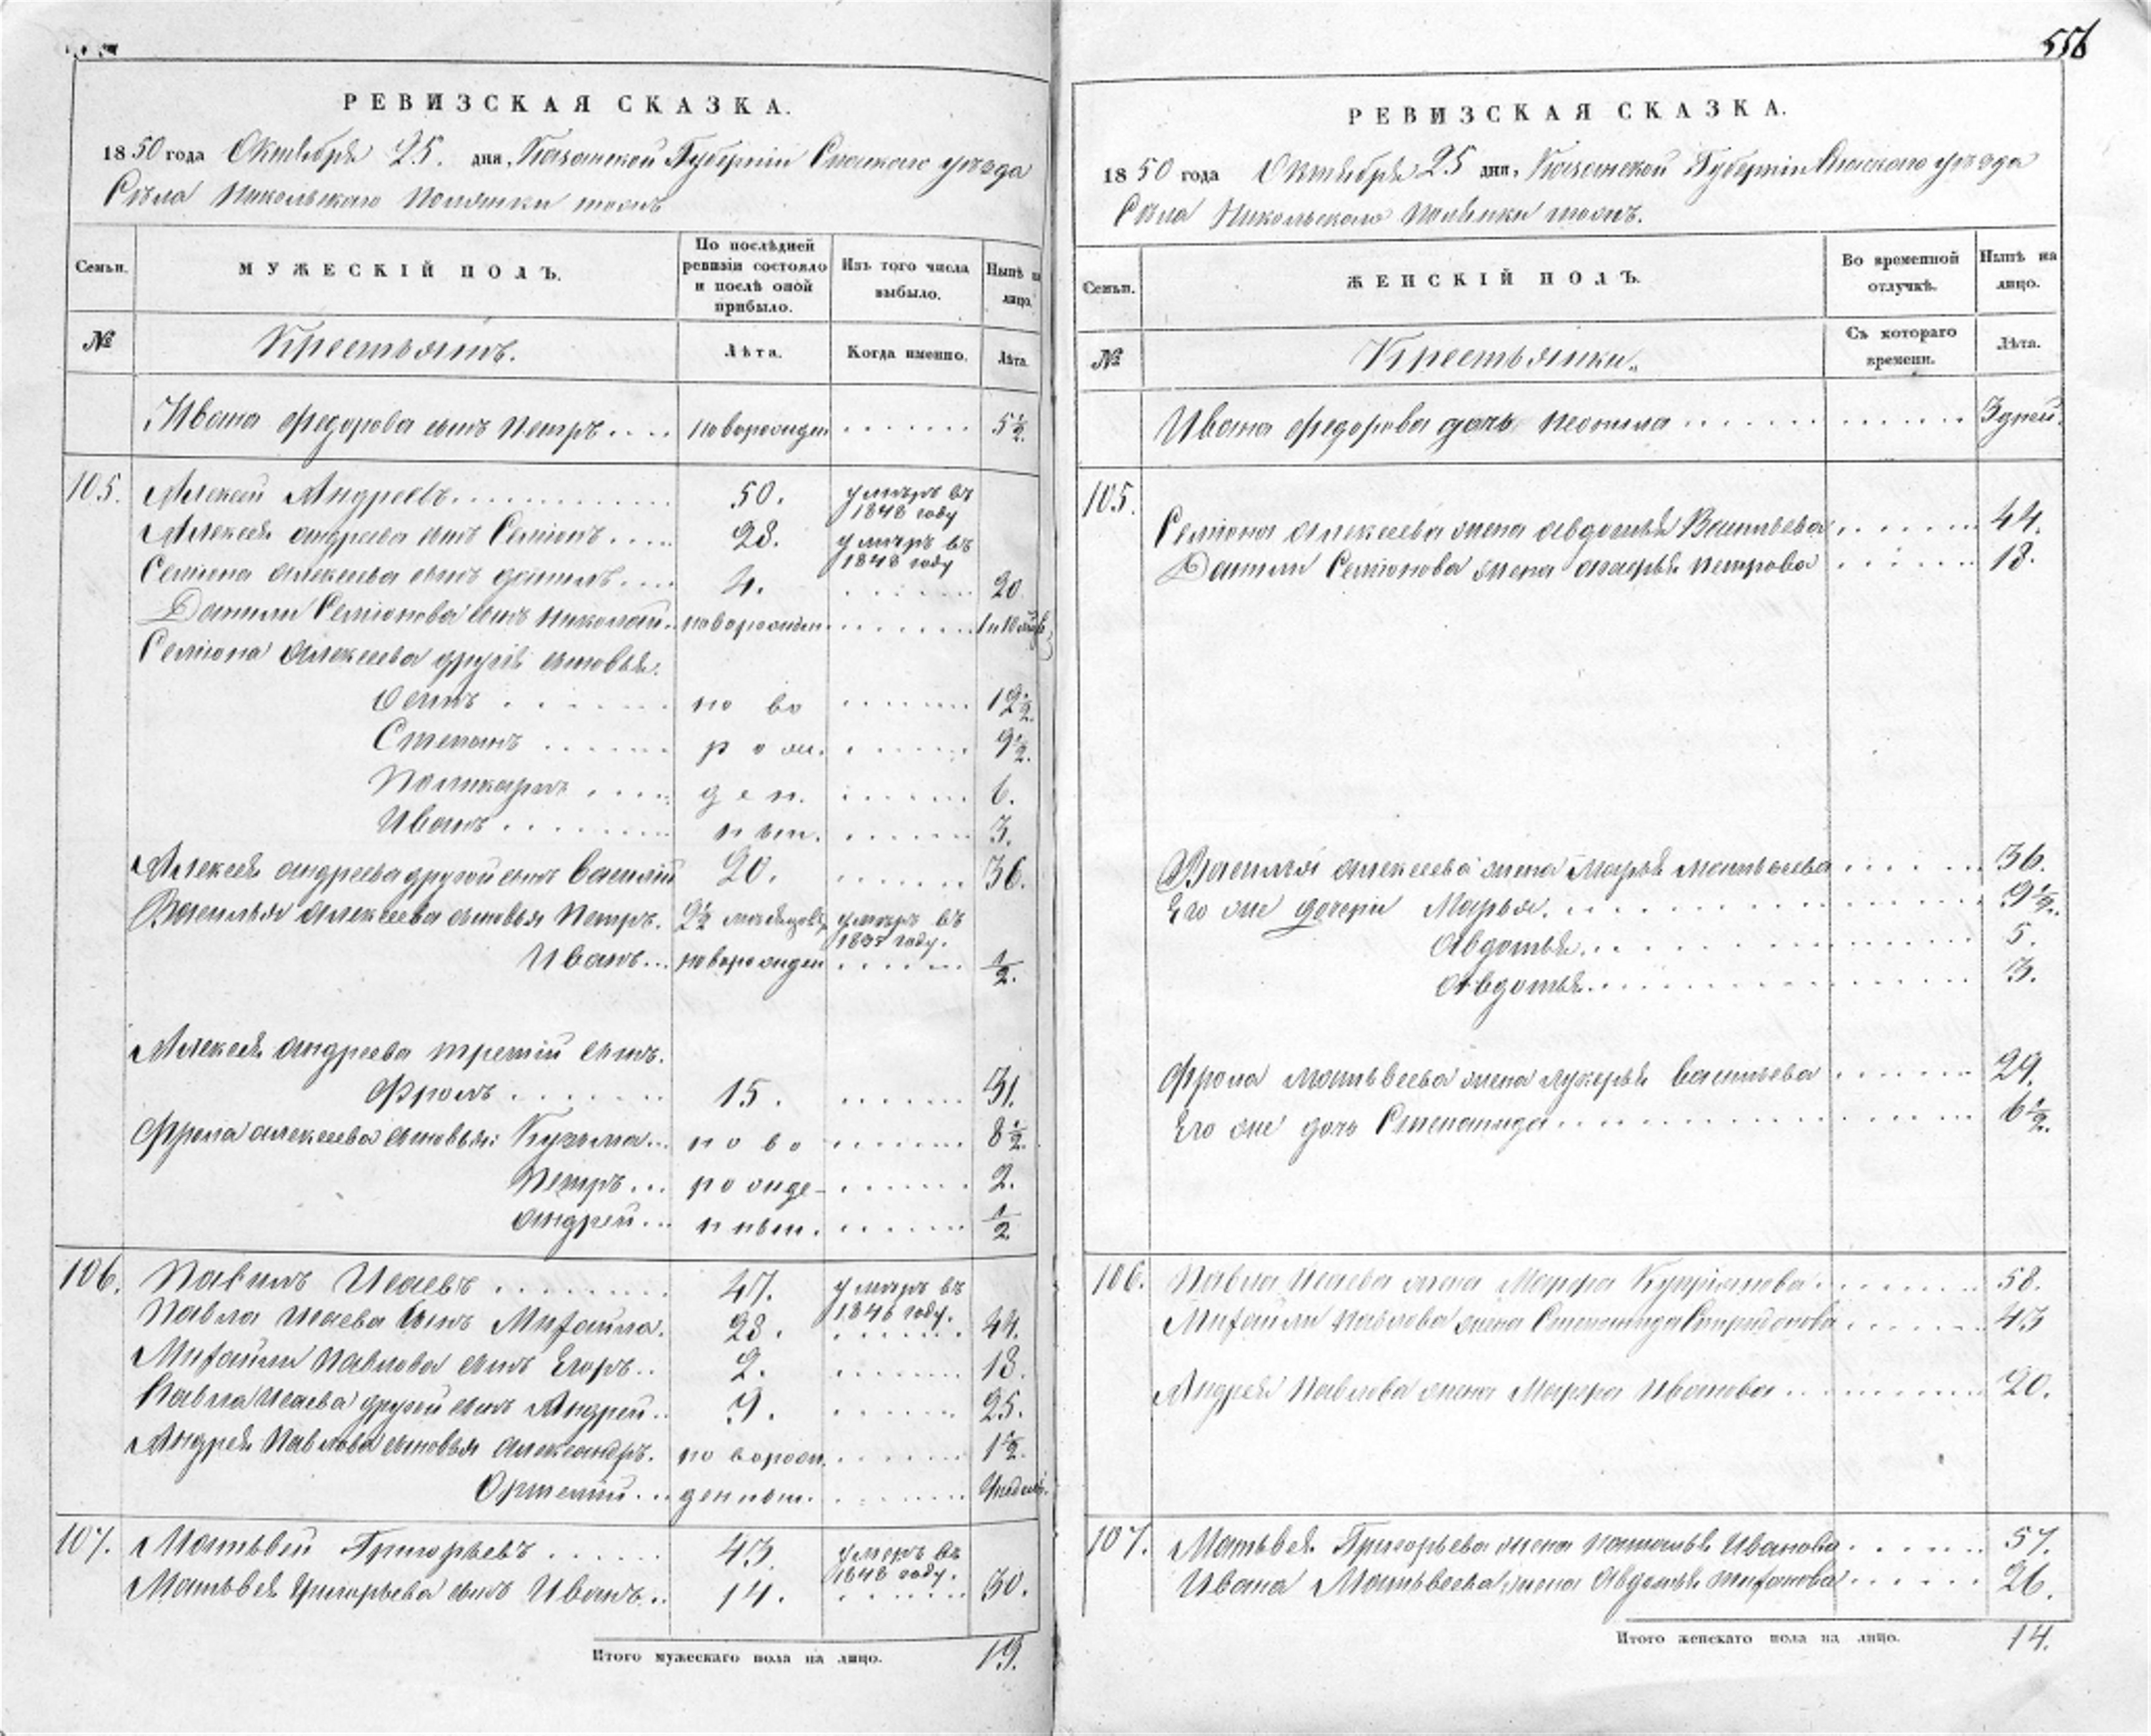 556
РЕВИЗСКАЯ СКАЗКА.
1850 года Октября 25. дня, Казанской Губернiи Спаскаго уѣзда
Села Никольскаго Полянки тожъ
Семьи. МУЖЕСКІЙ ПОЛЪ. По послѣдней ревизіи состояло и послѣ оной прибыло. Изъ того числа выбыло. Нынѣ на лицо.
№ Крестьянъ. Лѣта. Когда именно. Лѣта.
Ивана Федорова сынъ Петръ.... новорожден ....... 5½.
105. Алексей Андреевъ. 50. умеръ въ 1848 году
Алексея андреева сынъ Семionъ. 28. умеръ въ 1848 году
Семiона Алексеева сынъ данилъ. 4. 20.
Данилы Семiонова сынъ Николай.. новорожден
Семiона Алексеева другiе сыновья:
Осипъ но во 12½.
Степанъ рож. 9½.
Поликарпъ ден. 6.
Иванъ ныи. 3.
Алексея андреева другой сынъ Василiй 20. 36.
Василья Алексеева сыновья Петръ. 2½ месецовъ умеръ въ 1835 году.
Иванъ... новорожден ½.
Алексея андреева третiй сынъ.
Фролъ 15. 31.
Фрола алексеева сыновья: Кузьма... ново 8½.
Петръ... рожде- 2.
Андрей... нныи. ½.
106. Павилъ Исаевъ 47. умеръ въ 1846 году.
Павла Исаева сынъ Михайла. 28. 44.
Михайлы Павлова сынъ Егоръ.. 2. 18.
Павла Исаева другой сынъ Андрей.. 9. 25.
Андрея Павлова сыновья Александръ. новорож. 1½.
Артемiй... денныи.
107. Матьвей Григорьевъ 43. умеръ въ 1848 году.
Матьвея Григорьева сынъ Иванъ.. 14. 30.
Итого мужескаго пола на лицо. 19.
РЕВИЗСКАЯ СКАЗКА.
1850 года Октября 25 дня, Казанской Губернiи Спаскаго уѣзда
Села Никольскаго Полянки тожъ.
Семьи. ЖЕНСКІЙ ПОЛЪ. Во временной отлучкѣ. Нынѣ на лицо.
№ Крестьянки. Съ котораго времени. Лѣта.
Ивана Федорова дочь Неонила 3 дней.
105. Семiона Алексеева жена Авдотья Васильева 44.
Данилы Семiонова жена Марья Петрова 18.
Василья Алексеева жена Марья Матьвеева 36.
Его же дочери Марья. 9½.
Авдотья. 5.
Авдотья. 3.
Фрола Матьвеева жена Лукерья Васильева 29.
Его же дочь Степанида 6½.
106. Павла Исаева жена Марфа Куприянова 58.
Михайлы Павлова жена Степанида Спиридонова 43
Андрея Павлова жена Марфа Иванова 20.
107. Матьвея Григорьева жена Наталья Иванова 57.
Ивана Матьвеева жена Авдотья 26.
Итого женскаго пола на лицо. 14.